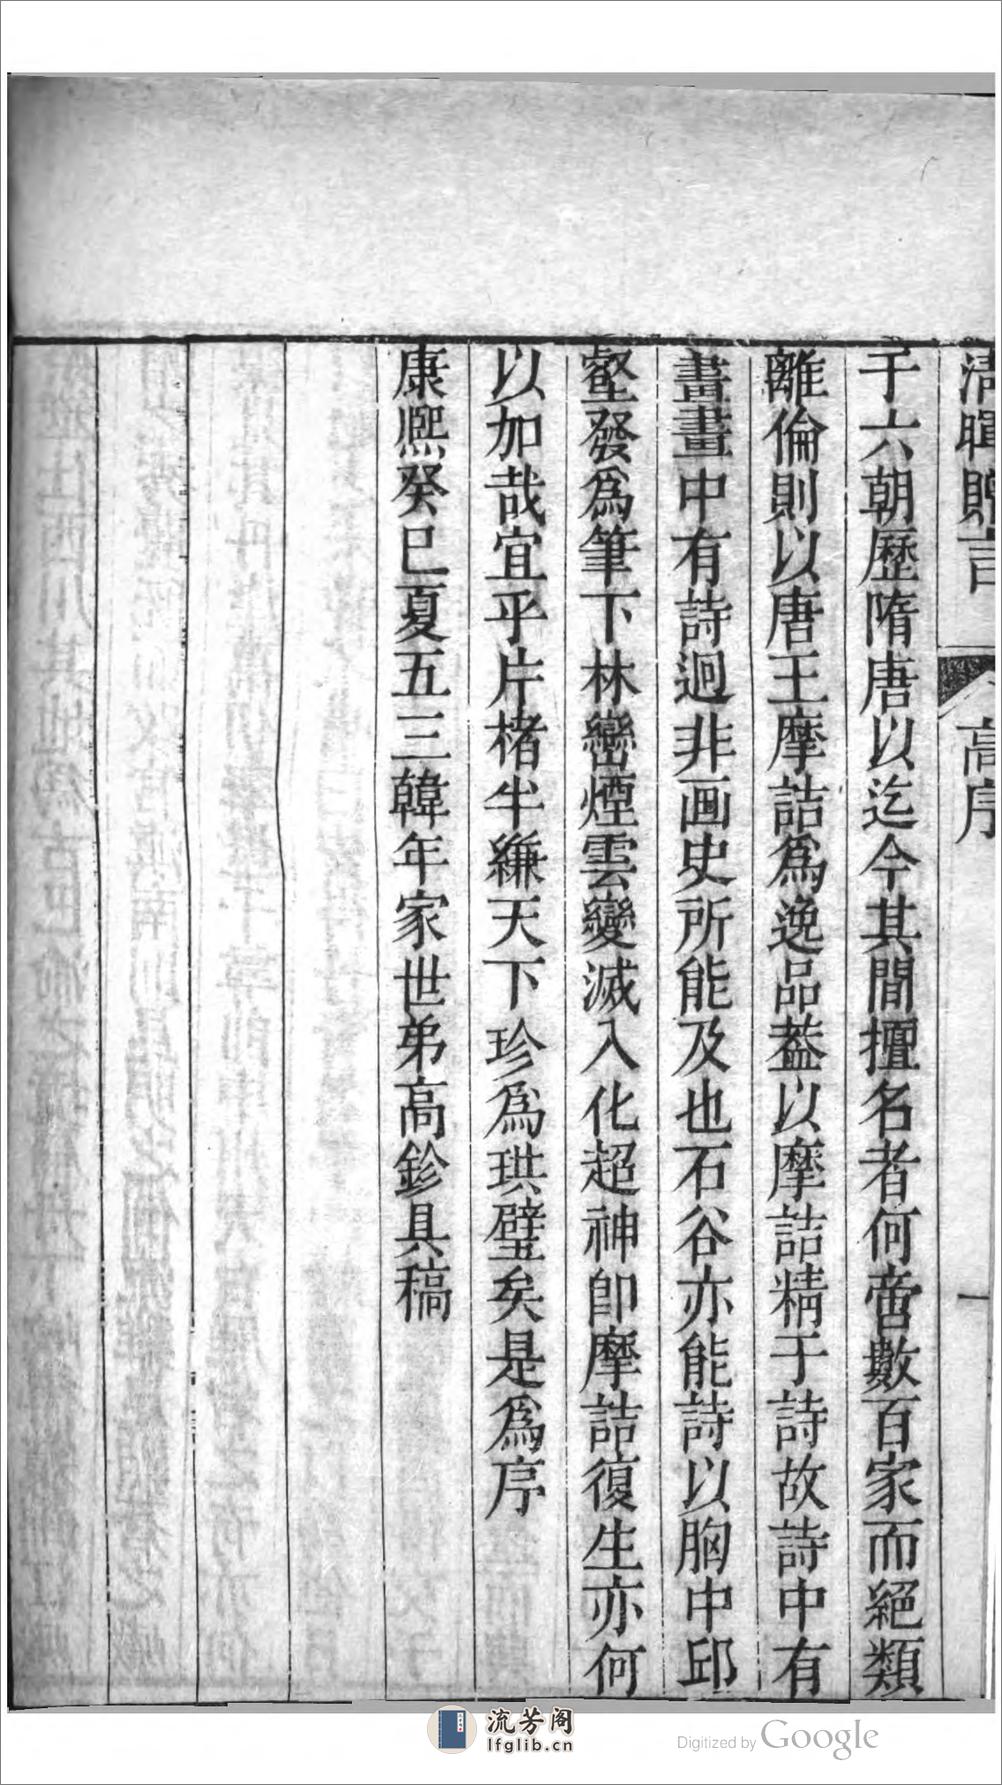 清暉贈言
高序
一
于六朝歷隋唐以迄今其間擅名者何啻數百家而絕類
離倫則以唐王摩詰爲逸品葢以摩詰精于詩故詩中有
畫畫中有詩迥非画史所能及也石谷亦能詩以胸中邱
壑發爲筆下林巒煙雲變滅入化超神卽摩詰復生亦何
以加哉宜乎片楮半縑天下珍爲珙璧矣是爲序
康熙癸巳夏五三韓年家世弟高鉁具稿
流芳阁
lfglib.cn
Digitized by Google